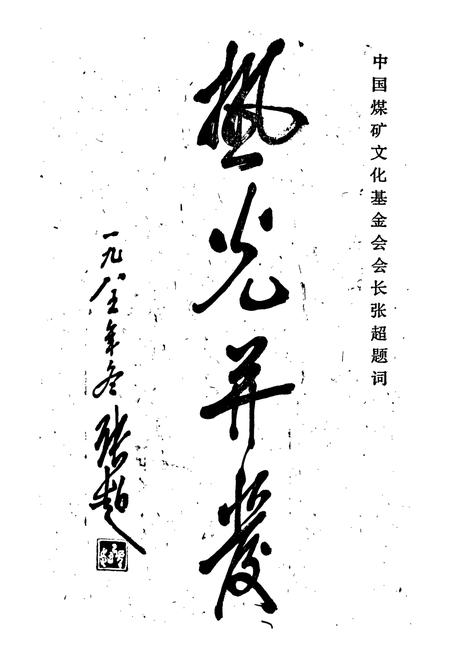 中国煤矿文化基金会会长张超题词
热光并發
一九八五年冬
张超